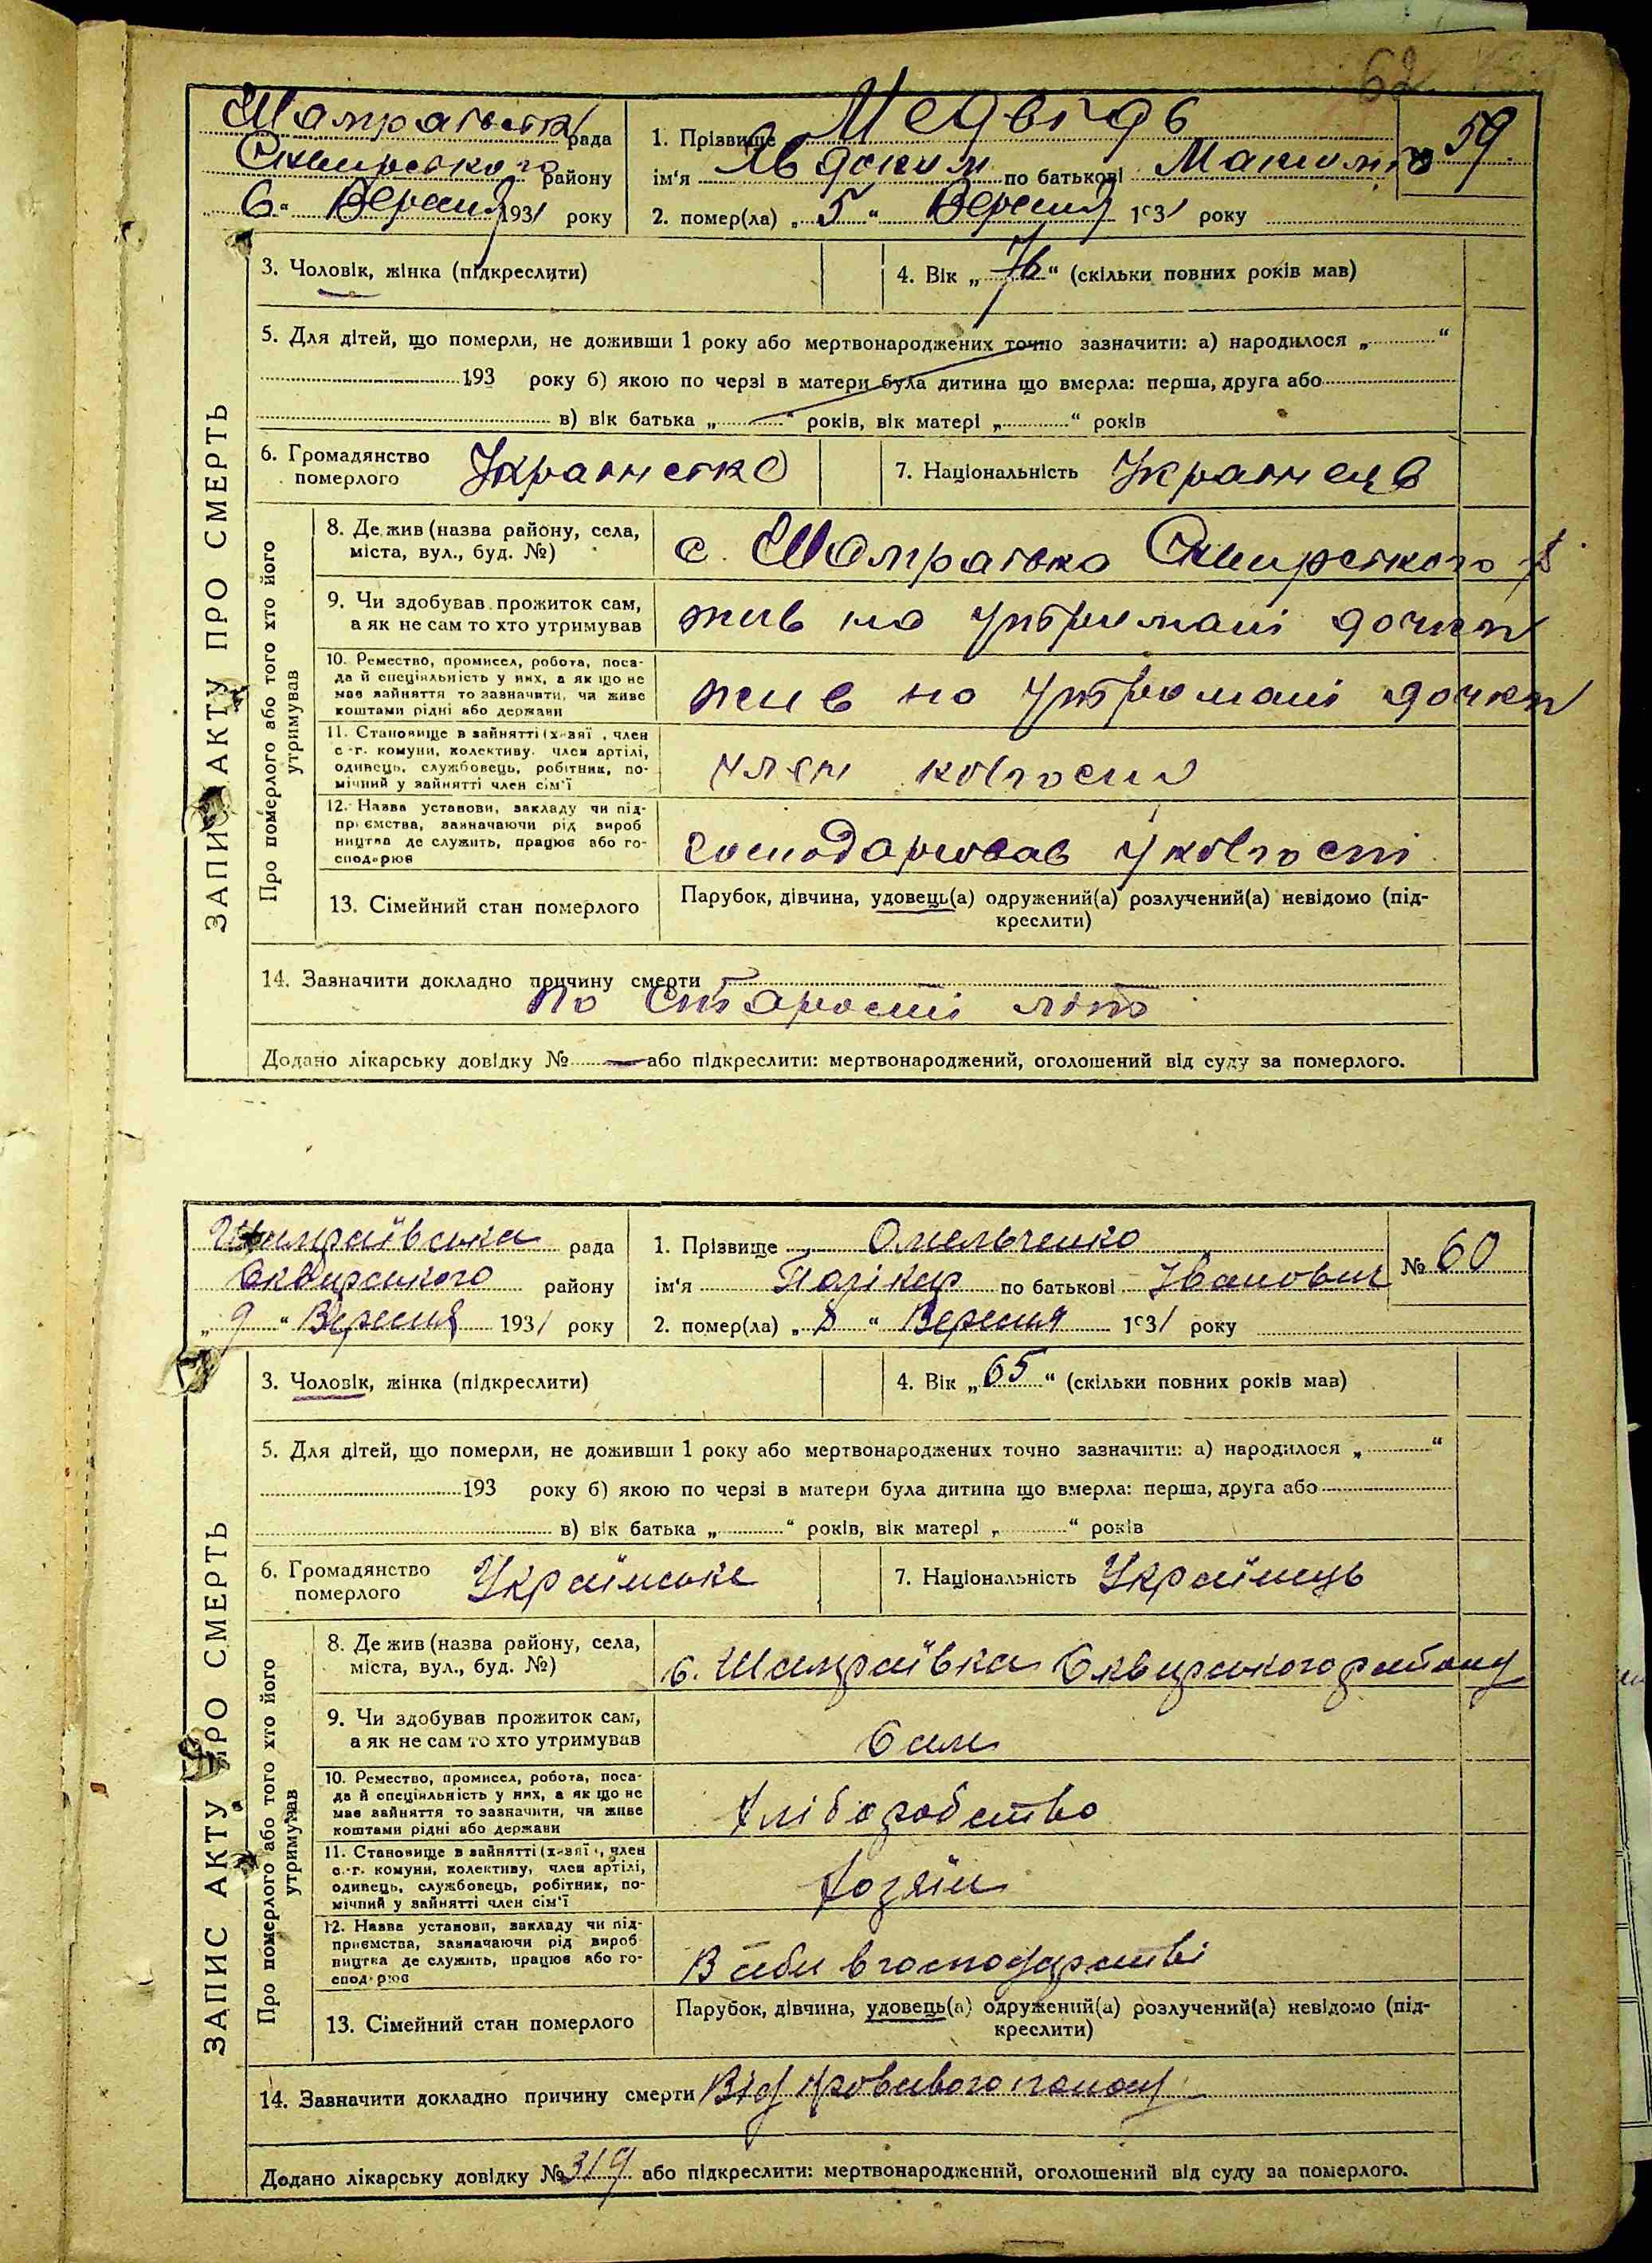 62
Шамраївська рада
Сквирського району
„6“ Вересня 1931 року
1. Прізвище Медвідь
ім‘я Явдоким по батькові
№ 59
2. помер(ла) „5“ Вересня 1931 року
ЗАПИС АКТУ ПРО СМЕРТЬ
3. Чоловік, жінка (підкреслити)
4. Вік „76“ (скільки повних років мав)
5. Для дітей, що померли, не доживши 1 року або мертвонароджених точно зазначити: а) народилося „ “
193 року б) якою по черзі в матери була дитина що вмерла: перша, друга або
в) вік батька „ “ років, вік матері „ “ років
6. Громадянство
померлого
Українське
7. Національність Українець
Про померлого або того хто його
утримував
8. Де жив (назва району, села,
міста, вул., буд. №)
с. Шамраївка Сквирського р
9. Чи здобував прожиток сам,
а як не сам то хто утримував
жив на утримані дочки
10. Ремество, промисел, робота, поса-
да й спеціяльність у них, а як що не
має зайняття то зазначити, чи живе
коштами рідні або держави
жив на утримані дочки
11. Становище в зайнятті (х-зяї , член
с.-г. комуни, колективу, член артілі,
одинець, службовець, робітник, по-
мічний у зайнятті член сім‘ї
член колгоспу
12. Назва установи, закладу чи під-
приємства, зазначаючи рід вироб
ництва де служить, працює або го-
сподарює
господарював у колгоспі
13. Сімейний стан померлого
Парубок, дівчина, удовець(а) одружений(а) розлучений(а) невідомо (під-
креслити)
14. Зазначити докладно причину смерти
по старости літ
Додано лікарську довідку № — або підкреслити: мертвонароджений, оголошений від суду за померлого.
Шамраївська рада
Сквирського району
„9“ Вересня 1931 року
1. Прізвище Омельченко
ім‘я Полікар по батькові Іванович
№ 60
2. помер(ла) „8“ Вересня 1931 року
ЗАПИС АКТУ ПРО СМЕРТЬ
3. Чоловік, жінка (підкреслити)
4. Вік „65“ (скільки повних років мав)
5. Для дітей, що померли, не доживши 1 року або мертвонароджених точно зазначити: а) народилося „ “
193 року б) якою по черзі в матери була дитина що вмерла: перша, друга або
в) вік батька „ “ років, вік матері „ “ років
6. Громадянство
померлого
Українське
7. Національність Українець
Про померлого або того хто його
утримував
8. Де жив (назва району, села,
міста, вул., буд. №)
с. Шамраївка Сквирського району
9. Чи здобував прожиток сам,
а як не сам то хто утримував
Сам
10. Ремество, промисел, робота, поса-
да й спеціяльність у них, а як що не
має зайняття то зазначити, чи живе
коштами рідні або держави
Хліборобство
11. Становище в зайнятті (х-зяї , член
с.-г. комуни, колективу, член артілі,
одинець, службовець, робітник, по-
мічний у зайнятті член сім‘ї
Хозяїн
12. Назва установи, закладу чи під-
приємства, зазначаючи рід вироб
ництва де служить, працює або го-
сподарює
В господарстві
13. Сімейний стан померлого
Парубок, дівчина, удовець(а) одружений(а) розлучений(а) невідомо (під-
креслити)
14. Зазначити докладно причину смерти Від кровавого поносу
Додано лікарську довідку № 319 або підкреслити: мертвонароджений, оголошений від суду за померлого.